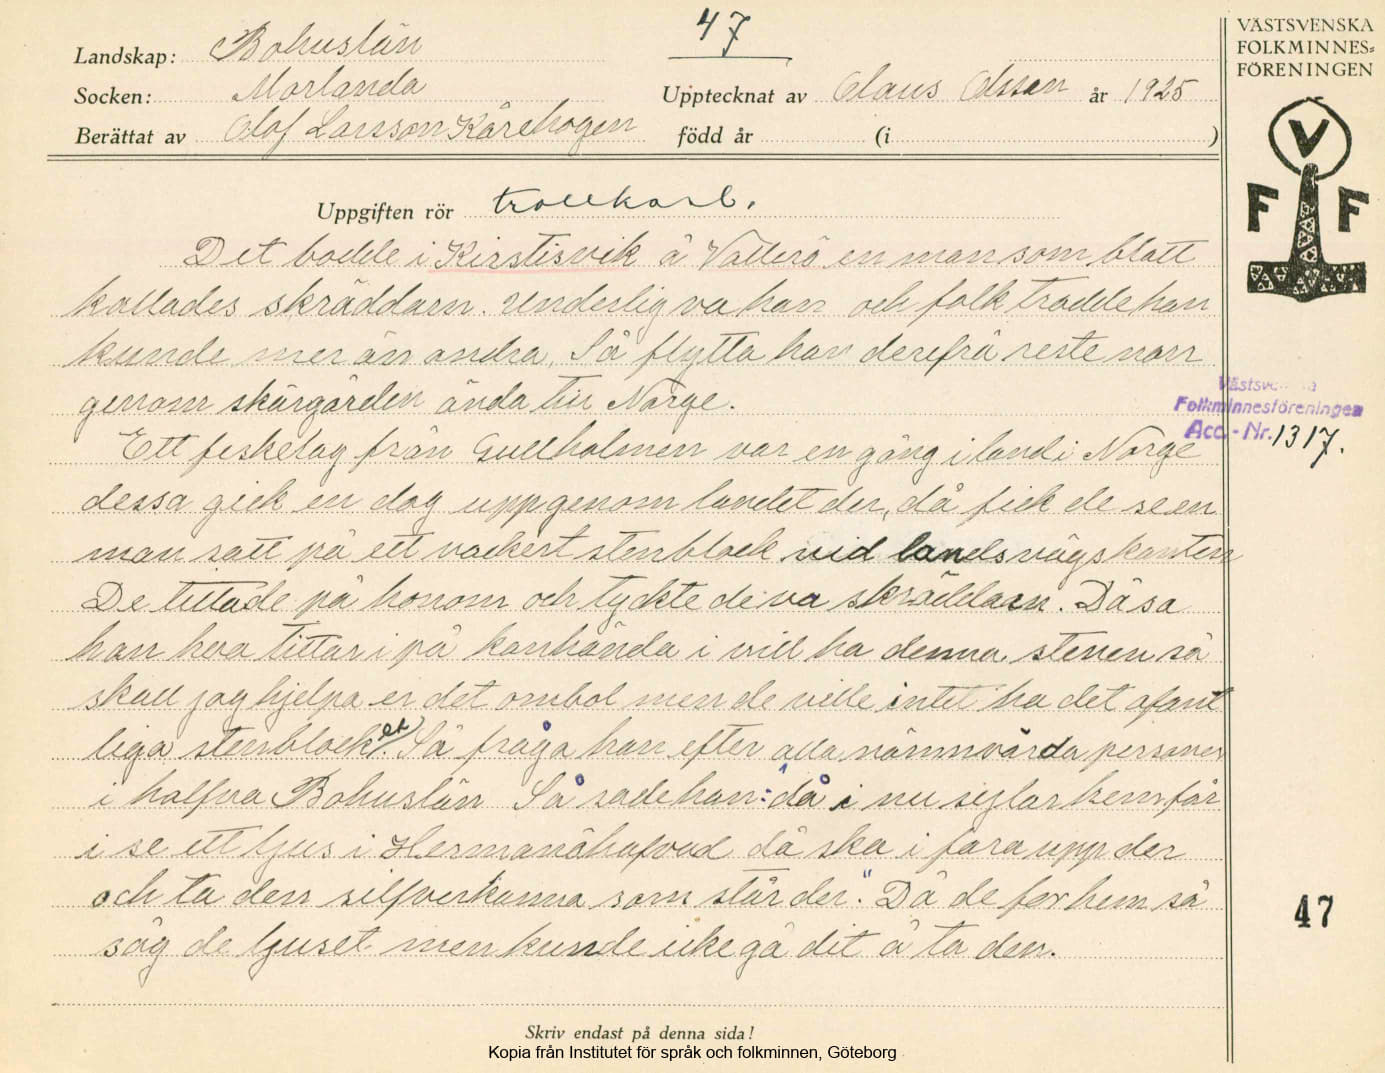 47
Landskap: Bohuslän
Socken: Morlanda
Upptecknat av Olaus Olsson år 1925
Berättat av Olof Larsson Kårehogen född år (i )
VÄSTSVENSKA
FOLKMINNES=
FÖRENINGEN
V
F F
Uppgiften rör trollkarl.
Det bodde i Kirstisvik å Vallerö en man som blott
kallades skräddarn. Underlig va han och folk trodde han
kunde mer än andra. Så flytta han derefrå reste norr
genom skärgården ända till Norge.
Ett fiskelag från Gullholmen var en gång i land i Norge
dessa gick en dag upp genom landet der, då fick de se en
man satt på ett vackert stenblock vid landsvägskanten
De tittade på honom och tyckte de va skräddarn. Då sa
han hva tittar i på kanhända i vill ha denna stenen så
skall jag hjelpa er det ombol men de ville intet ha det ofant
liga stenblocket. Så fråga han efter alla nämnvärda personer
i halfva Bohuslän Så sade han: "då i nu seglar hem får
i se ett ljus i Hermanöhufvud då ska i fara upp der
och ta den silfverkanna som står der". Då de for hem så
såg de ljuset men kunde icke gå dit å ta den.
Västsv
Folkminnesföreningen
Acc.-Nr. 1317.
47
Skriv endast på denna sida!
Kopia från Institutet för språk och folkminnen, Göteborg